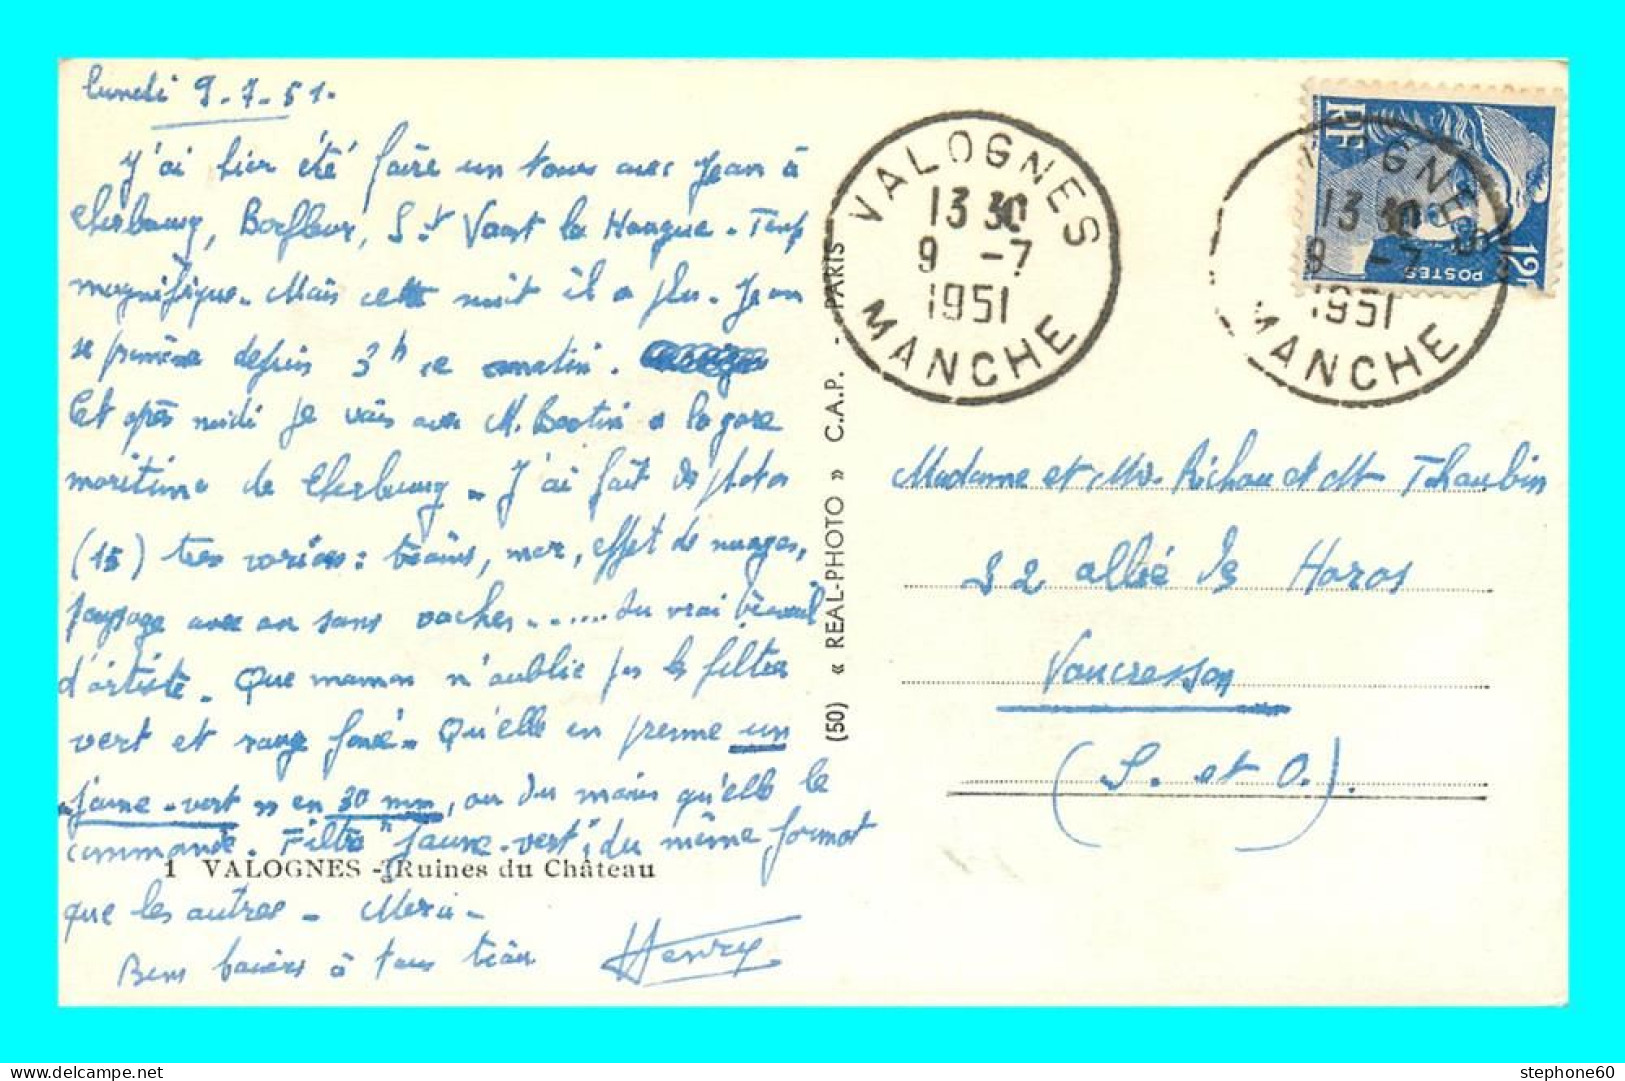 lundi 9-7-51.
J'ai hier été faire un tour avec Jean à
Cherbourg, Barfleur, St Vaast la Hougue. Temps
magnifique. Mais cette nuit il a plu. Jean
se promène depuis 3h ce matin.
Cet après midi je vais avec M. à la gare
maritime de Cherbourg. J'ai fait des photos
(15) très variées : trains, mer, effet de nuages,
paysage avec ou sans vaches........ du vrai travail
d'artiste. Que maman n'oublie pas les filtres
vert et rouge foncé. Qu'elle en prenne un
"jaune-vert" en 30 mm, ou du moins qu'elle le
commande. Filtre "jaune-vert", du même format
1 VALOGNES - Ruines du Château
que les autres - Merci -
Bons baisers à tous trois Henry
(50) « REAL-PHOTO » C.A.P. - PARIS
VALOGNES
13 30
9 -7
1951
MANCHE
RF
POSTES
12F
OGNES
13 30
9 -7
1951
MANCHE
Madame et Mr. Richou et Mr Thaubin
52 allée des Haras
Vaucresson
(S. et O.).
stephone60